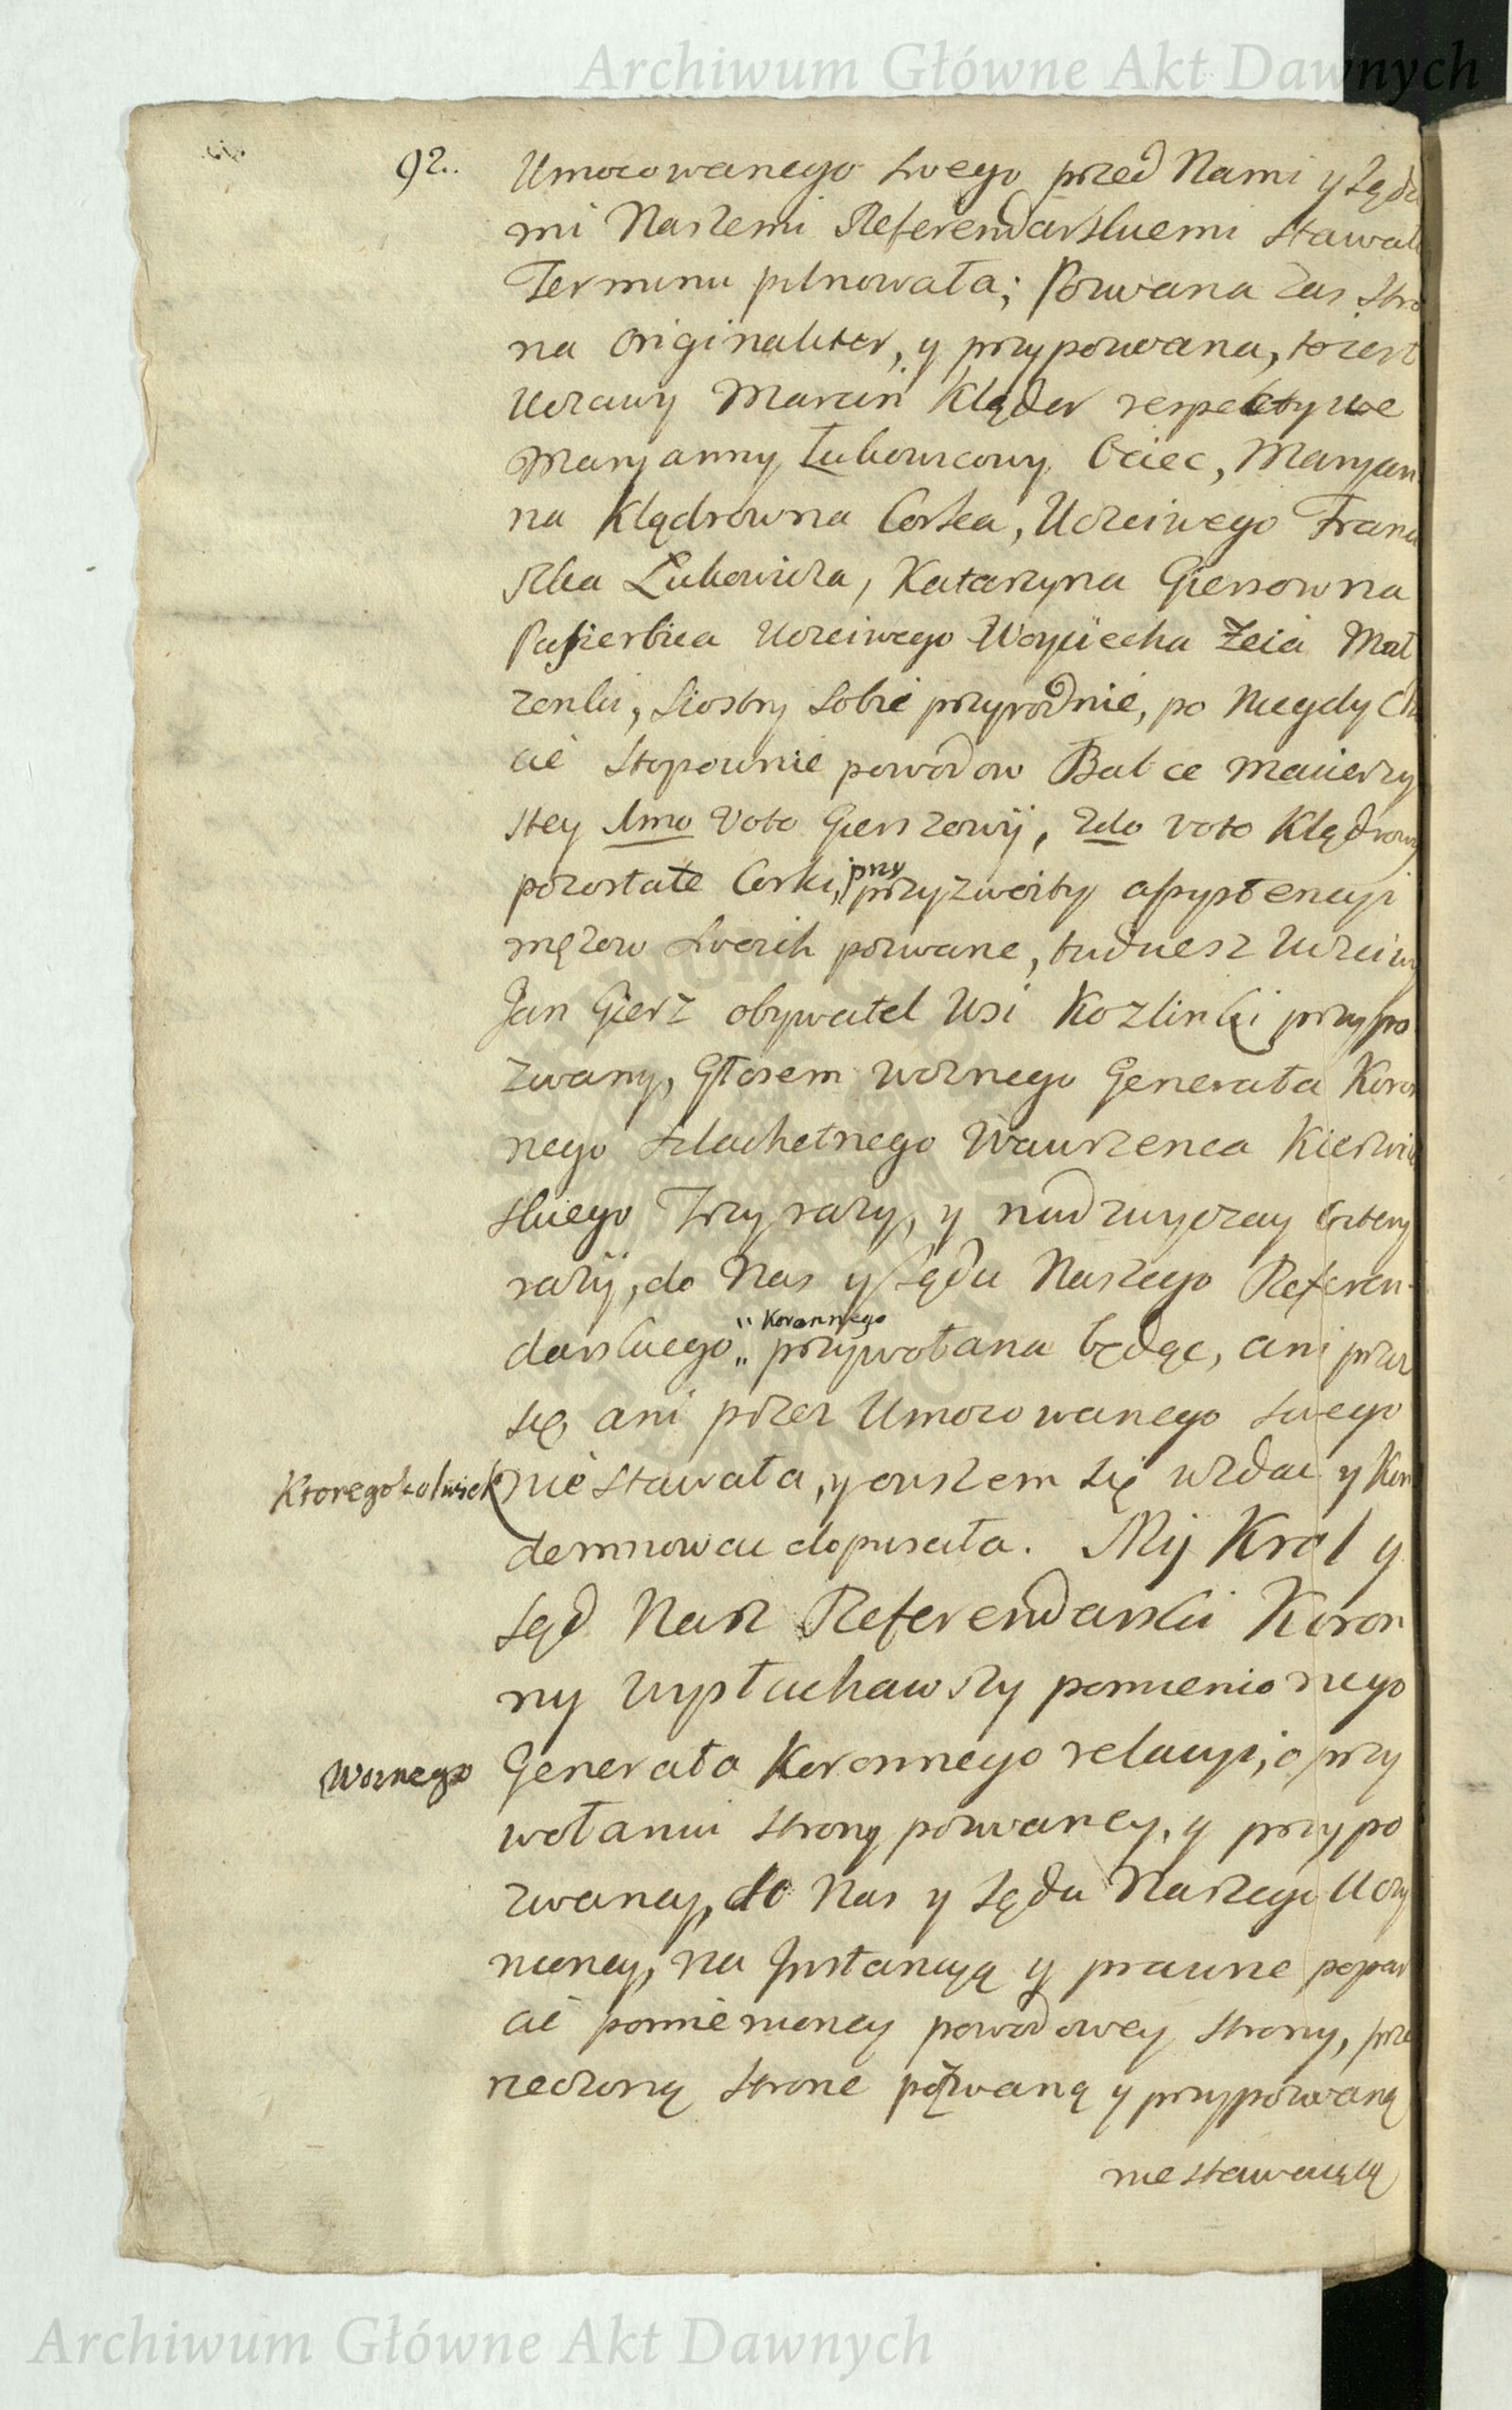 Archiwum Główne Akt Dawnych
92. Umocowanego swego przed Nami y Sęda
mi Naszemi Referendarskiemi stawała
Terminu pilnowała; Pozwana zas stro
na originaliter, y przypozwana, to iest
Uczciwy Marcin Klęder respektywe
Maryanny Łukowicowy Ociec, Maryan
na Klędrowna Corka, Uczciwego Franci
szka Lukowicza, Katarzyna Gierszowna
Pasierbica Uczciwego Woyciecha Zeia Mał
zonki, Siostry sobie przyrodnie, po Niegdy
cie Stopownie powodow Babce macierzy
stey 1mo Voto Gierszowÿ, 2do voto Klędrowy
pozostałe Corki, przy przyzwoity assystencyi
mężow swoich pozwane, tudziesz Uczciwy
Jan Giersz obywatel Wsi Kozlinki przypo
zwany, Głosem woznego Generała Koron
nego Szlachetnego Wawrzenca
skiego Trzy razy, y nadzwyczay Cztery
razÿ, do Nas y Sądu Naszego Referen-
darskiego Koronnego przywołana będąc, ani przez
się, ani przez Umocowanego swego
Ktoregokolwiek nie stawała, y owszem się wzdac y Kon
demnowac dopuscila. Mÿ Krol y
Sąd Nasz Referendarski Koron
ny Wysłuchawszy pomienionego
Woznego Generała Koronnego relacyi, o przy
wołaniu strony pozwaney, y przypo
zwaney, do Nas y Sądu Naszego Uczy
nioney, na Instancyą y prawne popar
cie pomienioney powodowey strony, prze
rzeczoną Strone pozwaną y przypozwaną
niestawaiącą
Archiwum Główne Akt Dawnych